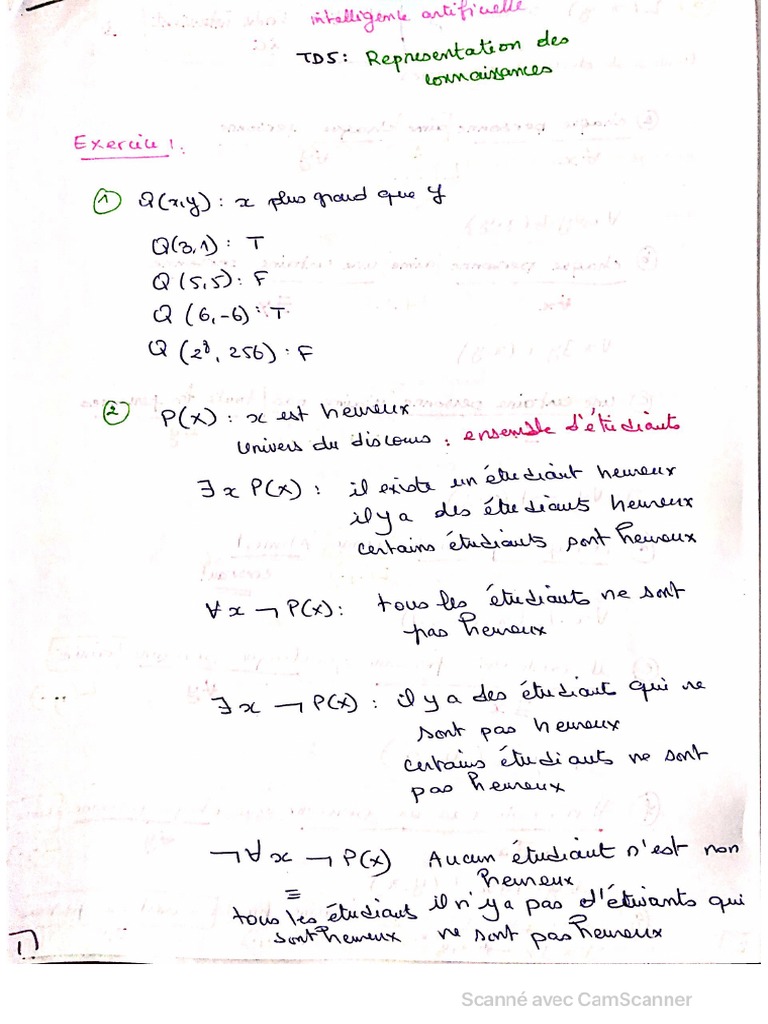 intelligente artificielle
TD5: Representation des
connaissances
Exercice 1.
① Q(x,y) : x plus grand que y
Q(3,1) : T
Q(5,5) : F
Q(6,-6) : T
Q(2⁸, 256) : F
② P(x) : x est heureux
Univers du discours : ensemble d'étudiants
∃x P(x) : il existe un étudiant heureux
il y a des étudiants heureux
certains étudiants sont heureux
∀x ¬P(x) : tous les étudiants ne sont
pas heureux
∃x ¬P(x) : il y a des étudiant qui ne
sont pas heureux
certains étudiants ne sont
pas heureux
¬∀x ¬P(x) Aucun étudiant n'est non
heureux
≡
tous les étudiant il n'y a pas d'étuiants qui
sont heureux ne sont pas heureux
1
Scanné avec CamScanner